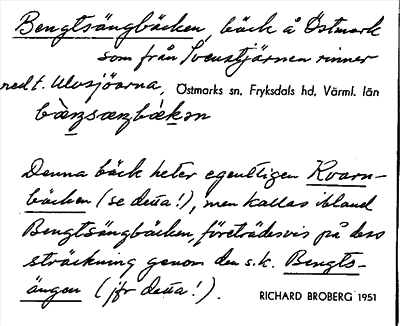 Bengtsängbäcken, bäck å Östmark
som från Svenstjärnen rinner
ned t. Ulvsjöarna, Östmarks sn. Fryksdals hd. Värml. län
Denna bäck heter egentligen Kvarn-
bäcken (se detta!), men kallas ibland
Bengtsängbäcken, företrädesvis på dess
sträckning genom den s.k. Bengts-
ängen (jfr detta!).
RICHARD BROBERG 1951